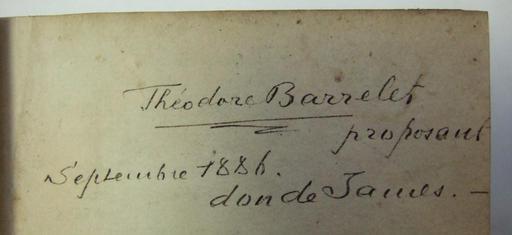 Théodore Barrelet
proposant
Septembre 1886.
don de James. —